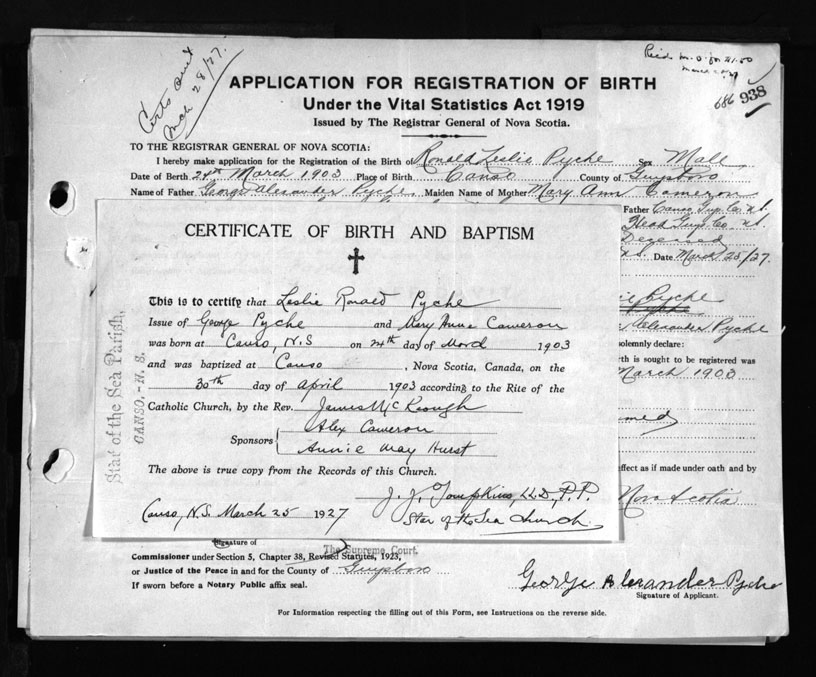 Certs sent
Mch 28/27.
686 938
APPLICATION FOR REGISTRATION OF BIRTH
Under the Vital Statistics Act 1919
Issued by The Registrar General of Nova Scotia.
TO THE REGISTRAR GENERAL OF NOVA SCOTIA:
I hereby make application for the Registration of the Birth of Ronald Leslie Pyche Sex Male
Date of Birth 24th March 1903 Place of Birth Canso County of Guysboro
Name of Father George Alexander Pyche Maiden Name of Mother Mary Ann Cameron
Father Canso Guys Co. N.S.
Head Guys Co. N.S.
Deceased
N.S. Date March 25/27.
CERTIFICATE OF BIRTH AND BAPTISM
This is to certify that Leslie Ronald Pyche
Issue of George Pyche and Mary Anne Cameron
was born at Canso, N.S on 24th day of March 1903
and was baptized at Canso, Nova Scotia, Canada, on the
30th day of April 1903 according to the Rite of the
Catholic Church, by the Rev. James McKeough
Sponsors Alex Cameron
Annie May Hurst
The above is true copy from the Records of this Church.
J. J. Tompkins, LL.D., P.P.
Canso, N.S. March 25 1927 Star of the Sea Church.
Star of the Sea Parish,
CANSO. - N. S.
Pyche
Alexander Pyche
olemnly declare:
rth is sought to be registered was
March 1903
ffect as if made under oath and by
Nova Scotia
Signature of
The Supreme Court.
Commissioner under Section 5, Chapter 38, Revised Statutes, 1923,
or Justice of the Peace in and for the County of Guysboro
If sworn before a Notary Public affix seal.
George Alexander Pyche
Signature of Applicant.
For Information respecting the filling out of this Form, see Instructions on the reverse side.